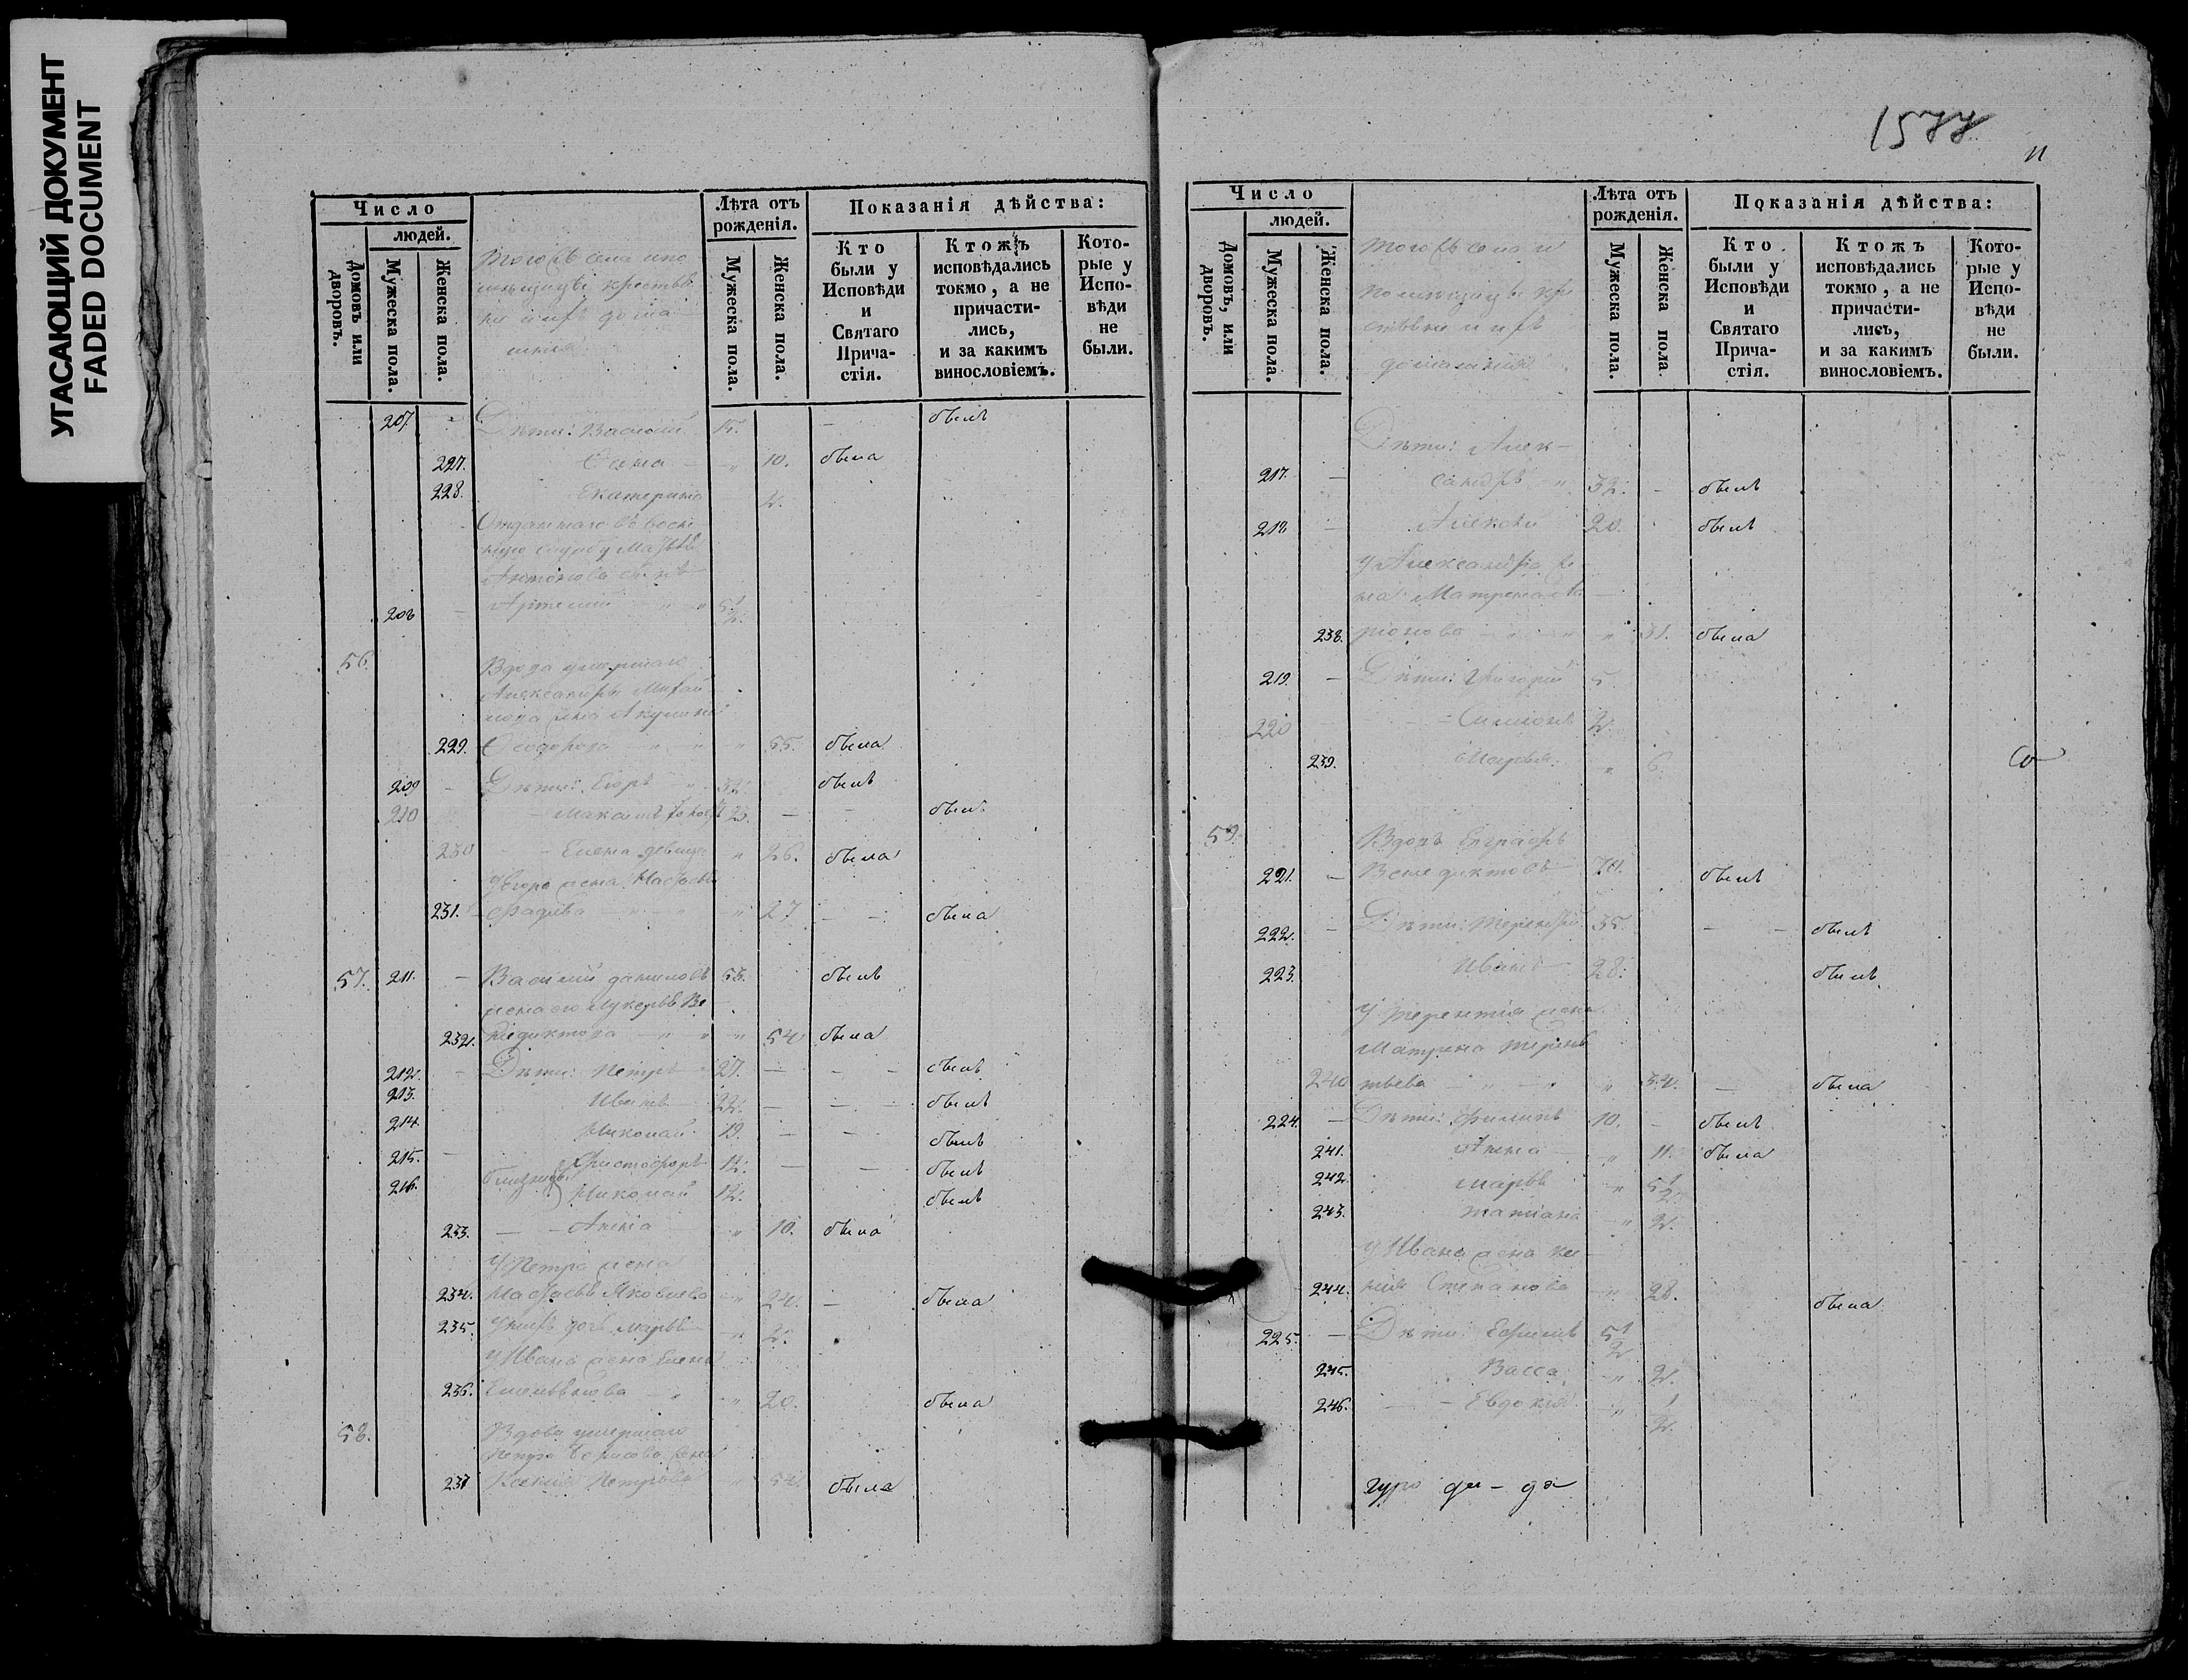 УГАСАЮЩИЙ ДОКУМЕНТ
FADED DOCUMENT
Число
людей.
Домовъ или дворовъ.
Мужеска пола.
Женска пола.
Лѣта отъ рожденія.
Мужеска пола.
Женска пола.
Показанія дѣйства:
Кто были у Исповѣди и Святаго Прича-стія.
Ктожъ исповѣдались токмо, а не причасти-лись, и за какимъ винословіемъ.
Кото-рые у Испо-вѣди не были.
207. Дѣти: Василий 15. — былъ
227. 10. была
228. Екатерина 2.
Отданнаго въ воен-
ную службу
Антонова сынъ
208 Артемий 5 1/2
56. Вдова умершаго
Александра Михай-
лова жена Акулина
229. Ѳеодорова 55. была
209 Дѣти: Егоръ 32. былъ
210 Максимъ 23. — — былъ
230 Елена девица 26. была
У Егора жена Настасья
231. Фадѣева 27 — — была
57. 211. — Василий Даниловъ 53. былъ
жена его Лукерья Ве-
232. недиктова 54 была
212. Дѣти: Петръ 27. — — былъ
213. Иванъ 22. — — былъ
214. Николай 19. — — былъ
215. Христофоръ 12. — — былъ
216. близнецы Николай 12. былъ
233. — Анна 10. была
У Петра жена
234. Настасья Яковлева 24. — была
235. У нихъ дочь Марья 2.
У Ивана жена Елена
236. Емельянова 20. была
58. Вдова умершаго
Петра Борисова жена
237 Ксения Петрова 54. была
1577
11
Число
людей.
Домовъ, или дворовъ.
Мужеска пола.
Женска пола.
Лѣта отъ рожденія.
Мужеска пола.
Женска пола
Показанія дѣйства:
Кто были у Исповѣди и Святаго Прича-стія.
Ктожъ исповѣдались токмо, а не причасти-лись, и за какимъ винословіемъ.
Кото-рые у Испо-вѣди не были.
Дѣти: Алек-
217. — сандръ 32. — былъ
218. — Алексѣй 20. былъ
У Александра же-
на Матрена
238. 31. была
219. — Дѣти: Григорий 5
220 Симионъ 2.
239. Марья 6.
59. Вдовъ Евграфъ
221. — Венедиктовъ 70. былъ
222. — Дѣти: Терентий 35. — — былъ
223. Иванъ 28. былъ
У Терентия жена
Матрена Терен-
240 тьева 34. — была
224. — Дѣти: Филипъ 10. — былъ
241. Анна 11. была
242. Марья 5 1/2
243. Татиана 2.
У Ивана жена
244. Степанова 28. была
225. — Дѣти: Ефимъ 5 1/2
245. Васса 2.
246. — Евдокия 1/2